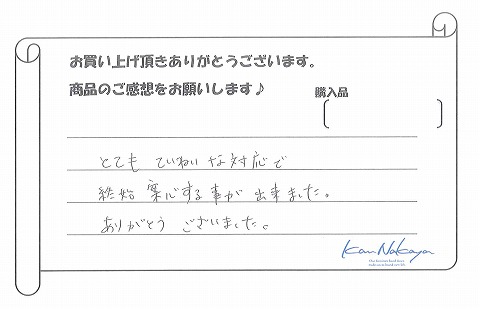 お買い上げ頂きありがとうございます。
商品のご感想をお願いします♪
購入品
とても ていねいな対応で
終始 安心する事が 出来ました。
ありがとう ございました。
Kan Nakaya